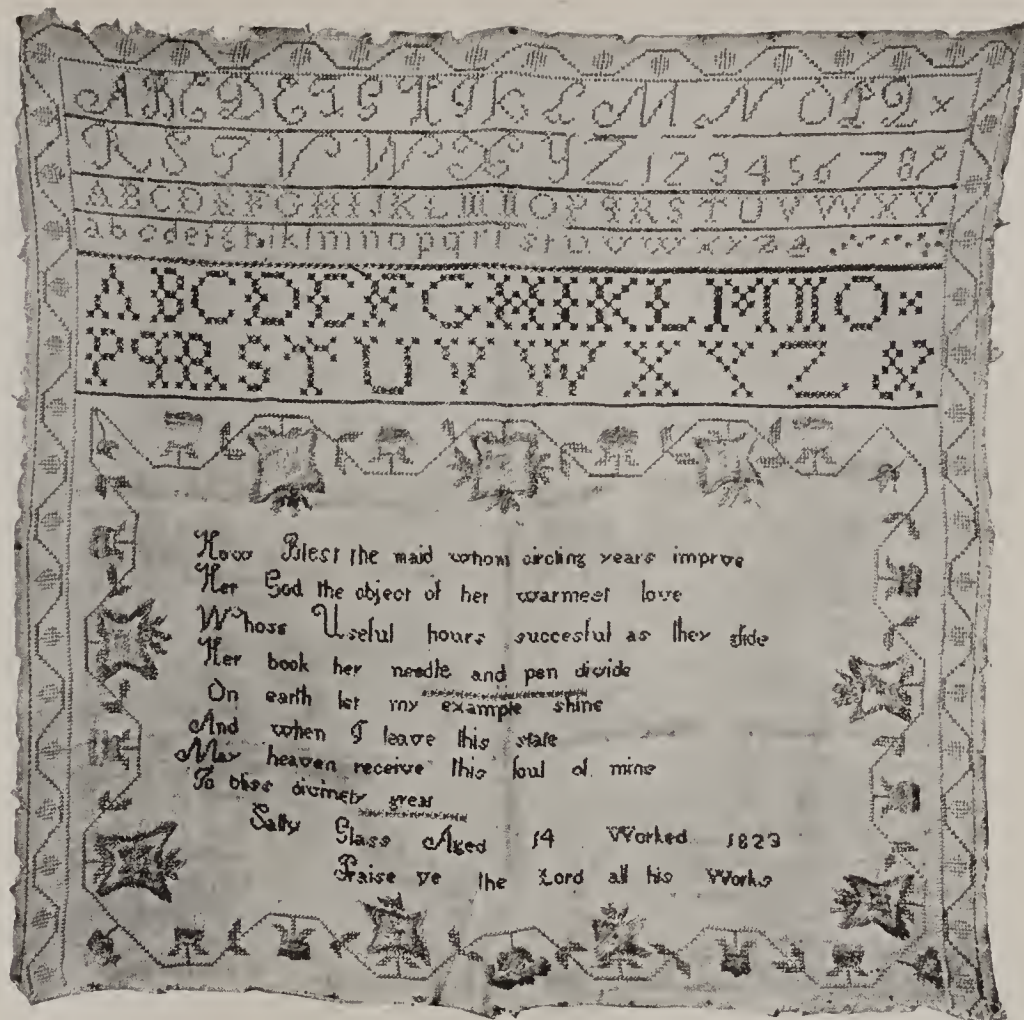 A B C D E F G H I K L M N O P Q ×
R S T V W X Y Z 1 2 3 4 5 6 7 8 9
A B C D E F G H I J K L M N O P Q R S T U V W X Y
a b c d e f g h i k l m n o p q r ſ s t u v w x y z &
A B C D E F G H I K L M N O ×
P Q R S T U V W X Y Z &
How Blest the maid whom circling years improve
Her God the object of her warmest love
Whose Useful hours succesful as they glide
Her book her needle and pen divide
On earth let my example shine
And when I leave this state
May heaven receive this soul of mine
To bliss divinely great
Sally Glass Aged 14 Worked 1823
Praise ye the Lord all his Works